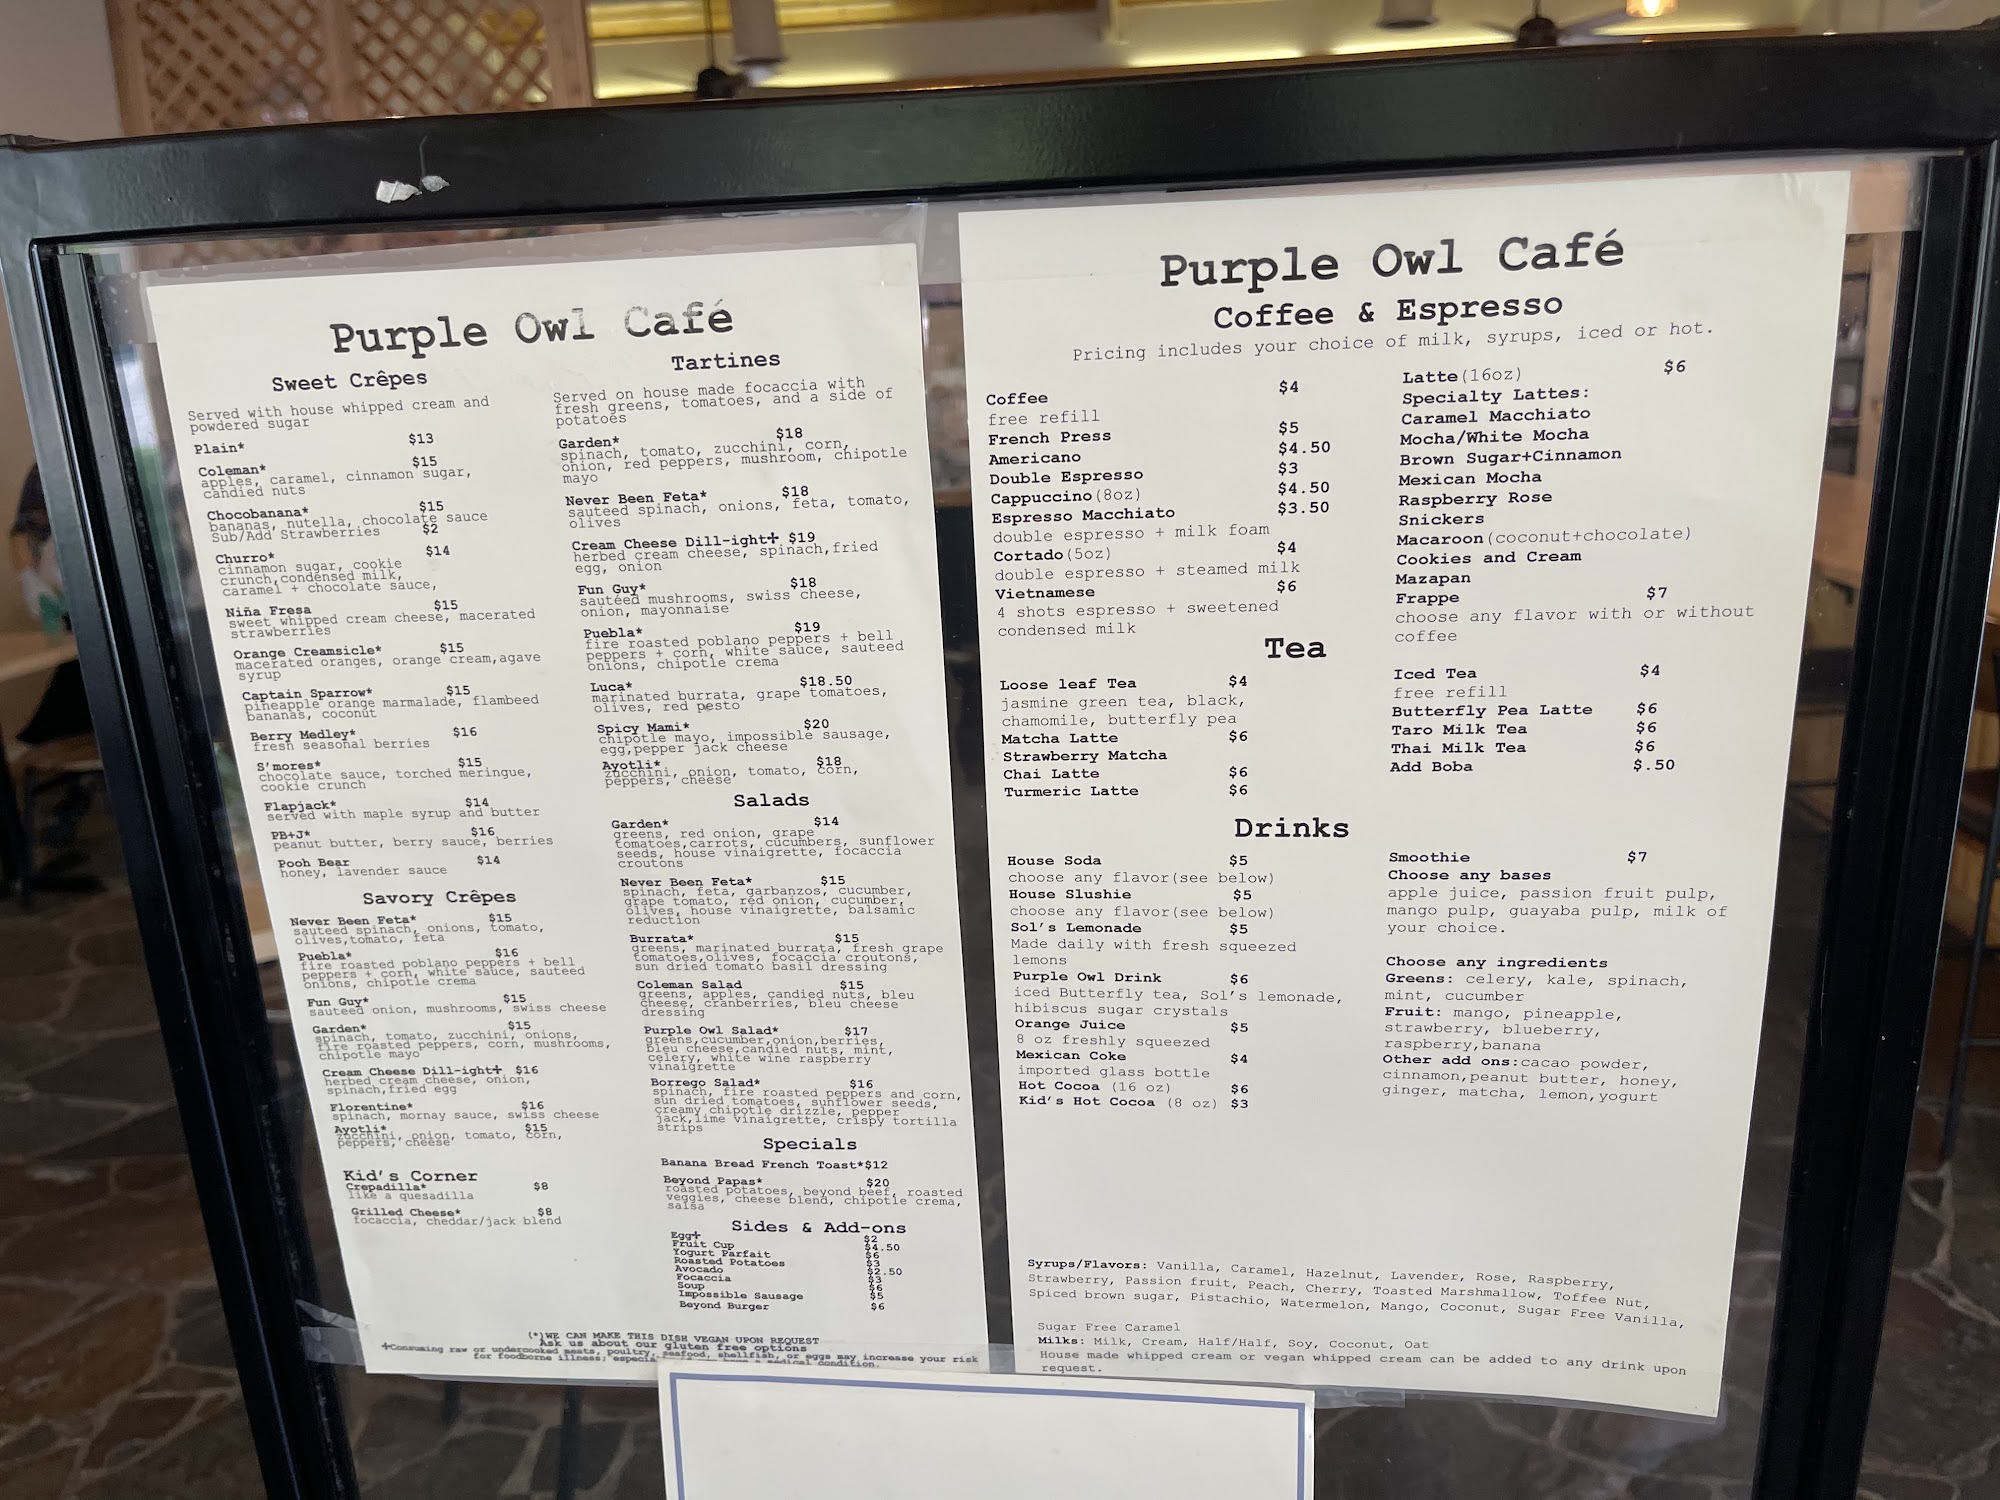 Purple Owl Café
Sweet Crêpes
Served with house whipped cream and
powdered sugar
Plain* $13
Coleman* $15
apples, caramel, cinnamon sugar,
candied nuts
Chocobanana* $15
bananas, nutella, chocolate sauce
Sub/Add Strawberries $2
Churro* $14
cinnamon sugar, cookie
crunch,condensed milk,
caramel + chocolate sauce,
Niña Fresa $15
sweet whipped cream cheese, macerated
strawberries
Orange Creamsicle* $15
macerated oranges, orange cream,agave
syrup
Captain Sparrow* $15
pineapple orange marmalade, flambeed
bananas, coconut
Berry Medley* $16
fresh seasonal berries
S'mores* $15
chocolate sauce, torched meringue,
cookie crunch
Flapjack* $14
served with maple syrup and butter
PB+J* $16
peanut butter, berry sauce, berries
Pooh Bear $14
honey, lavender sauce
Savory Crêpes
Never Been Feta* $15
sauteed spinach, onions, tomato,
olives,tomato, feta
Puebla* $16
fire roasted poblano peppers + bell
peppers + corn, white sauce, sauteed
onions, chipotle crema
Fun Guy* $15
sauteed onion, mushrooms, swiss cheese
Garden* $15
spinach, tomato, zucchini, onions,
fire roasted peppers, corn, mushrooms,
chipotle mayo
Cream Cheese Dill-ight+ $16
herbed cream cheese, onion,
spinach,fried egg
Florentine* $16
spinach, mornay sauce, swiss cheese
Ayotli* $15
zucchini, onion, tomato, corn,
peppers, cheese
Kid's Corner
Crepadilla* $8
like a quesadilla
Grilled Cheese* $8
focaccia, cheddar/jack blend
Tartines
Served on house made focaccia with
fresh greens, tomatoes, and a side of
potatoes
Garden* $18
spinach, tomato, zucchini, corn,
onion, red peppers, mushroom, chipotle
mayo
Never Been Feta* $18
sauteed spinach, onions, feta, tomato,
olives
Cream Cheese Dill-ight+ $19
herbed cream cheese, spinach,fried
egg, onion
Fun Guy* $18
sautéed mushrooms, swiss cheese,
onion, mayonnaise
Puebla* $19
fire roasted poblano peppers + bell
peppers + corn, white sauce, sauteed
onions, chipotle crema
Luca* $18.50
marinated burrata, grape tomatoes,
olives, red pesto
Spicy Mami* $20
chipotle mayo, impossible sausage,
egg,pepper jack cheese
Ayotli* $18
zucchini, onion, tomato, corn,
peppers, cheese
Salads
Garden* $14
greens, red onion, grape
tomatoes,carrots, cucumbers, sunflower
seeds, house vinaigrette, focaccia
croutons
Never Been Feta* $15
spinach, feta, garbanzos, cucumber,
grape tomato, red onion, cucumber,
olives, house vinaigrette, balsamic
reduction
Burrata* $15
greens, marinated burrata, fresh grape
tomatoes,olives, focaccia croutons,
sun dried tomato basil dressing
Coleman Salad $15
greens, apples, candied nuts, bleu
cheese, cranberries, bleu cheese
dressing
Purple Owl Salad* $17
greens,cucumber,onion,berries,
bleu cheese,candied nuts, mint,
celery, white wine raspberry
vinaigrette
Borrego Salad* $16
spinach, fire roasted peppers and corn,
sun dried tomatoes, sunflower seeds,
creamy chipotle drizzle, pepper
jack,lime vinaigrette, crispy tortilla
strips
Specials
Banana Bread French Toast*$12
Beyond Papas* $20
roasted potatoes, beyond beef, roasted
veggies, cheese blend, chipotle crema,
salsa
Sides & Add-ons
Egg+ $2
Fruit Cup $4.50
Yogurt Parfait $6
Roasted Potatoes $3
Avocado $2.50
Focaccia $3
Soup $6
Impossible Sausage $5
Beyond Burger $6
(*)WE CAN MAKE THIS DISH VEGAN UPON REQUEST
Ask us about our gluten free options
+Consuming raw or undercooked meats, poultry, seafood, shellfish, or eggs may increase your risk
for foodborne illness; a medical condition.
Purple Owl Café
Coffee & Espresso
Pricing includes your choice of milk, syrups, iced or hot.
Coffee $4
free refill
French Press $5
Americano $4.50
Double Espresso $3
Cappuccino(8oz) $4.50
Espresso Macchiato $3.50
double espresso + milk foam
Cortado(5oz) $4
double espresso + steamed milk
Vietnamese $6
4 shots espresso + sweetened
condensed milk
Latte(16oz) $6
Specialty Lattes:
Caramel Macchiato
Mocha/White Mocha
Brown Sugar+Cinnamon
Mexican Mocha
Raspberry Rose
Snickers
Macaroon(coconut+chocolate)
Cookies and Cream
Mazapan
Frappe $7
choose any flavor with or without
coffee
Tea
Loose leaf Tea $4
jasmine green tea, black,
chamomile, butterfly pea
Matcha Latte $6
Strawberry Matcha
Chai Latte $6
Turmeric Latte $6
Iced Tea $4
free refill
Butterfly Pea Latte $6
Taro Milk Tea $6
Thai Milk Tea $6
Add Boba $.50
Drinks
House Soda $5
choose any flavor(see below)
House Slushie $5
choose any flavor(see below)
Sol's Lemonade $5
Made daily with fresh squeezed
lemons
Purple Owl Drink $6
iced Butterfly tea, Sol's lemonade,
hibiscus sugar crystals
Orange Juice $5
8 oz freshly squeezed
Mexican Coke $4
imported glass bottle
Hot Cocoa (16 oz) $6
Kid's Hot Cocoa (8 oz) $3
Smoothie $7
Choose any bases
apple juice, passion fruit pulp,
mango pulp, guayaba pulp, milk of
your choice.
Choose any ingredients
Greens: celery, kale, spinach,
mint, cucumber
Fruit: mango, pineapple,
strawberry, blueberry,
raspberry,banana
Other add ons:cacao powder,
cinnamon,peanut butter, honey,
ginger, matcha, lemon,yogurt
Syrups/Flavors: Vanilla, Caramel, Hazelnut, Lavender, Rose, Raspberry,
Strawberry, Passion fruit, Peach, Cherry, Toasted Marshmallow, Toffee Nut,
Spiced brown sugar, Pistachio, Watermelon, Mango, Coconut, Sugar Free Vanilla,
Sugar Free Caramel
Milks: Milk, Cream, Half/Half, Soy, Coconut, Oat
House made whipped cream or vegan whipped cream can be added to any drink upon
request.